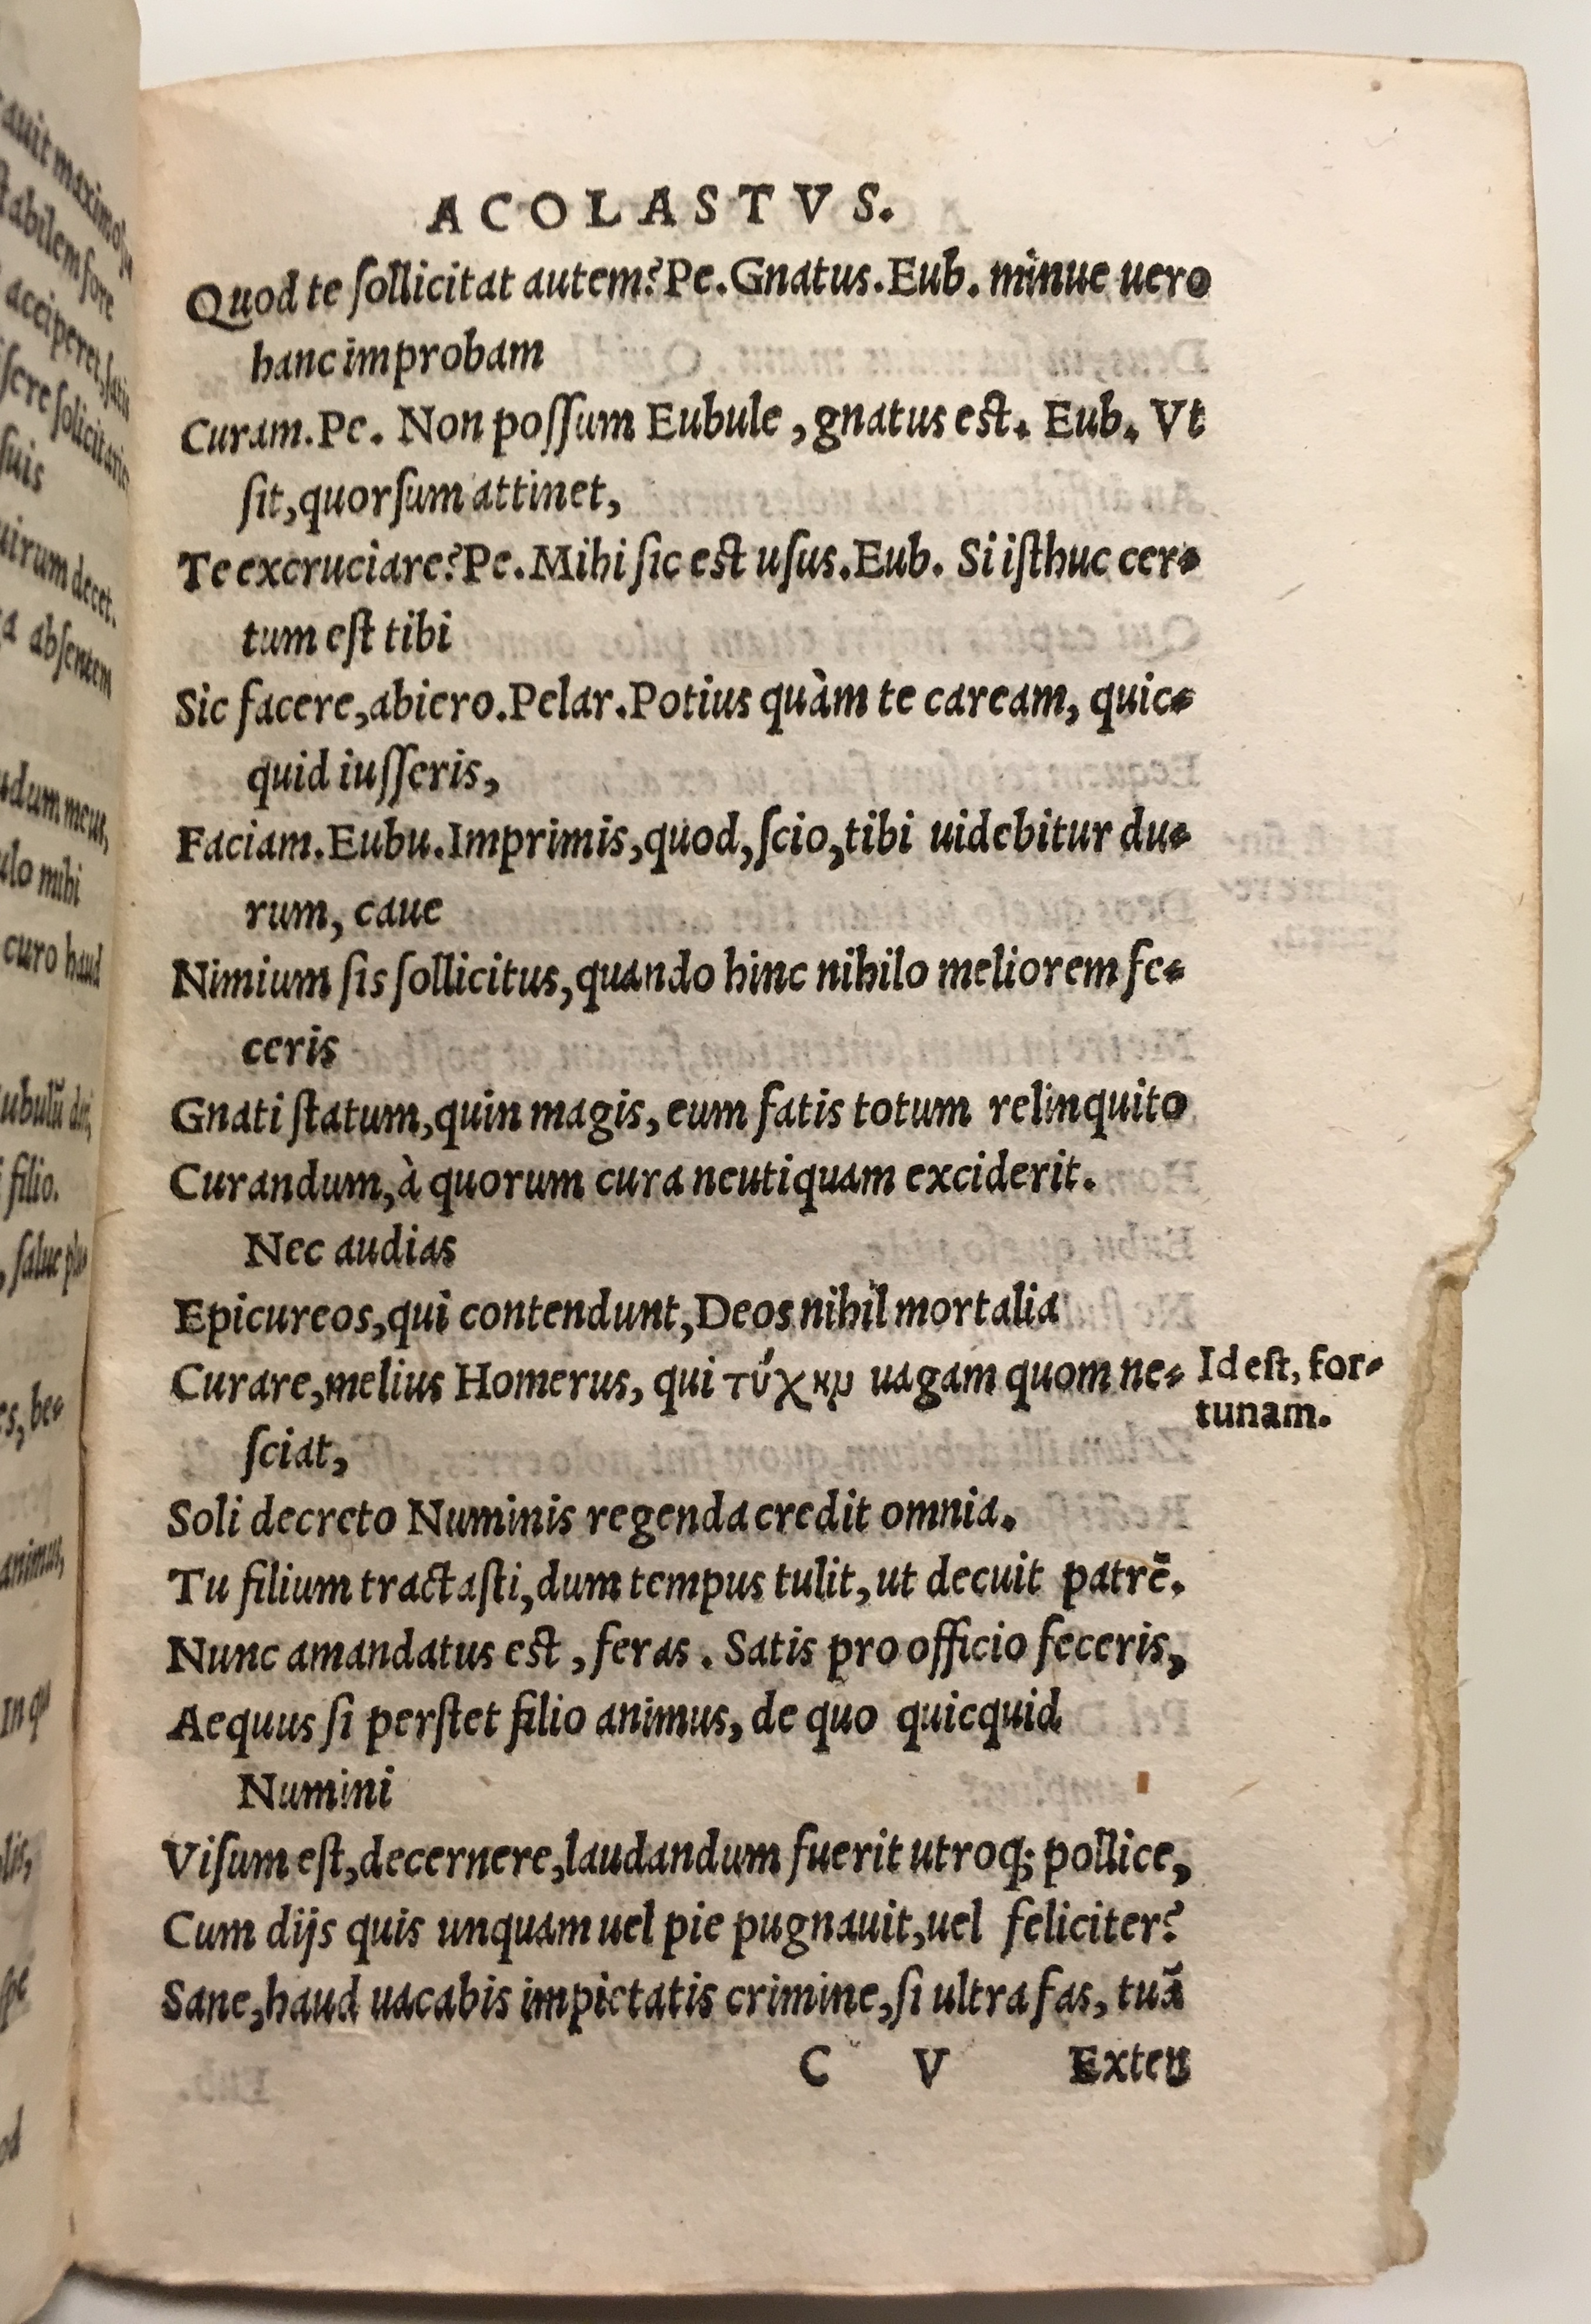 ACOLASTVS.
Quod te ſollicitat autem? Pe. Gnatus. Eub. minue uero
hanc improbam
Curam. Pe. Non poſſum Eubule, gnatus eſt. Eub. Vt
ſit, quorſum attinet,
Te excruciare? Pe. Mihi ſic eſt uſus. Eub. Si iſthuc cer-
tum eſt tibi
Sic facere, abiero. Pelar. Potius quàm te caream, quic-
quid iuſſeris,
Faciam. Eubu. Imprimis, quod, ſcio, tibi uidebitur du-
rum, caue
Nimium ſis ſollicitus, quando hinc nihilo meliorem fe-
ceris
Gnati ſtatum, quin magis, eum fatis totum relinquito
Curandum, à quorum cura neutiquam exciderit.
Nec audias
Epicureos, qui contendunt, Deos nihil mortalia
Curare, melius Homerus, qui τύχην uagam quom ne-
ſciat,
Id eſt, for-
tunam.
Soli decreto Numinis regenda credit omnia.
Tu filium tractaſti, dum tempus tulit, ut decuit patrē.
Nunc amandatus eſt, feras. Satis pro officio feceris,
Aequus ſi perſtet filio animus, de quo quicquid
Numini
Viſum eſt, decernere, laudandum fuerit utroq; pollice,
Cum dijs quis unquam uel pie pugnauit, uel feliciter?
Sane, haud uacabis impietatis crimine, ſi ultra fas, tuā
C V Exten
auit maximo
ſtabilem fore
acciperet, ſatis
ſuis
uirum decet.
abſentem
mihi
curo haud
filio.
ſalue
animus,
In qu